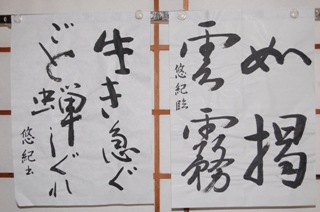 如掲
雲霧
悠紀臨
生き急ぐ
ごと蝉しぐれ
悠紀